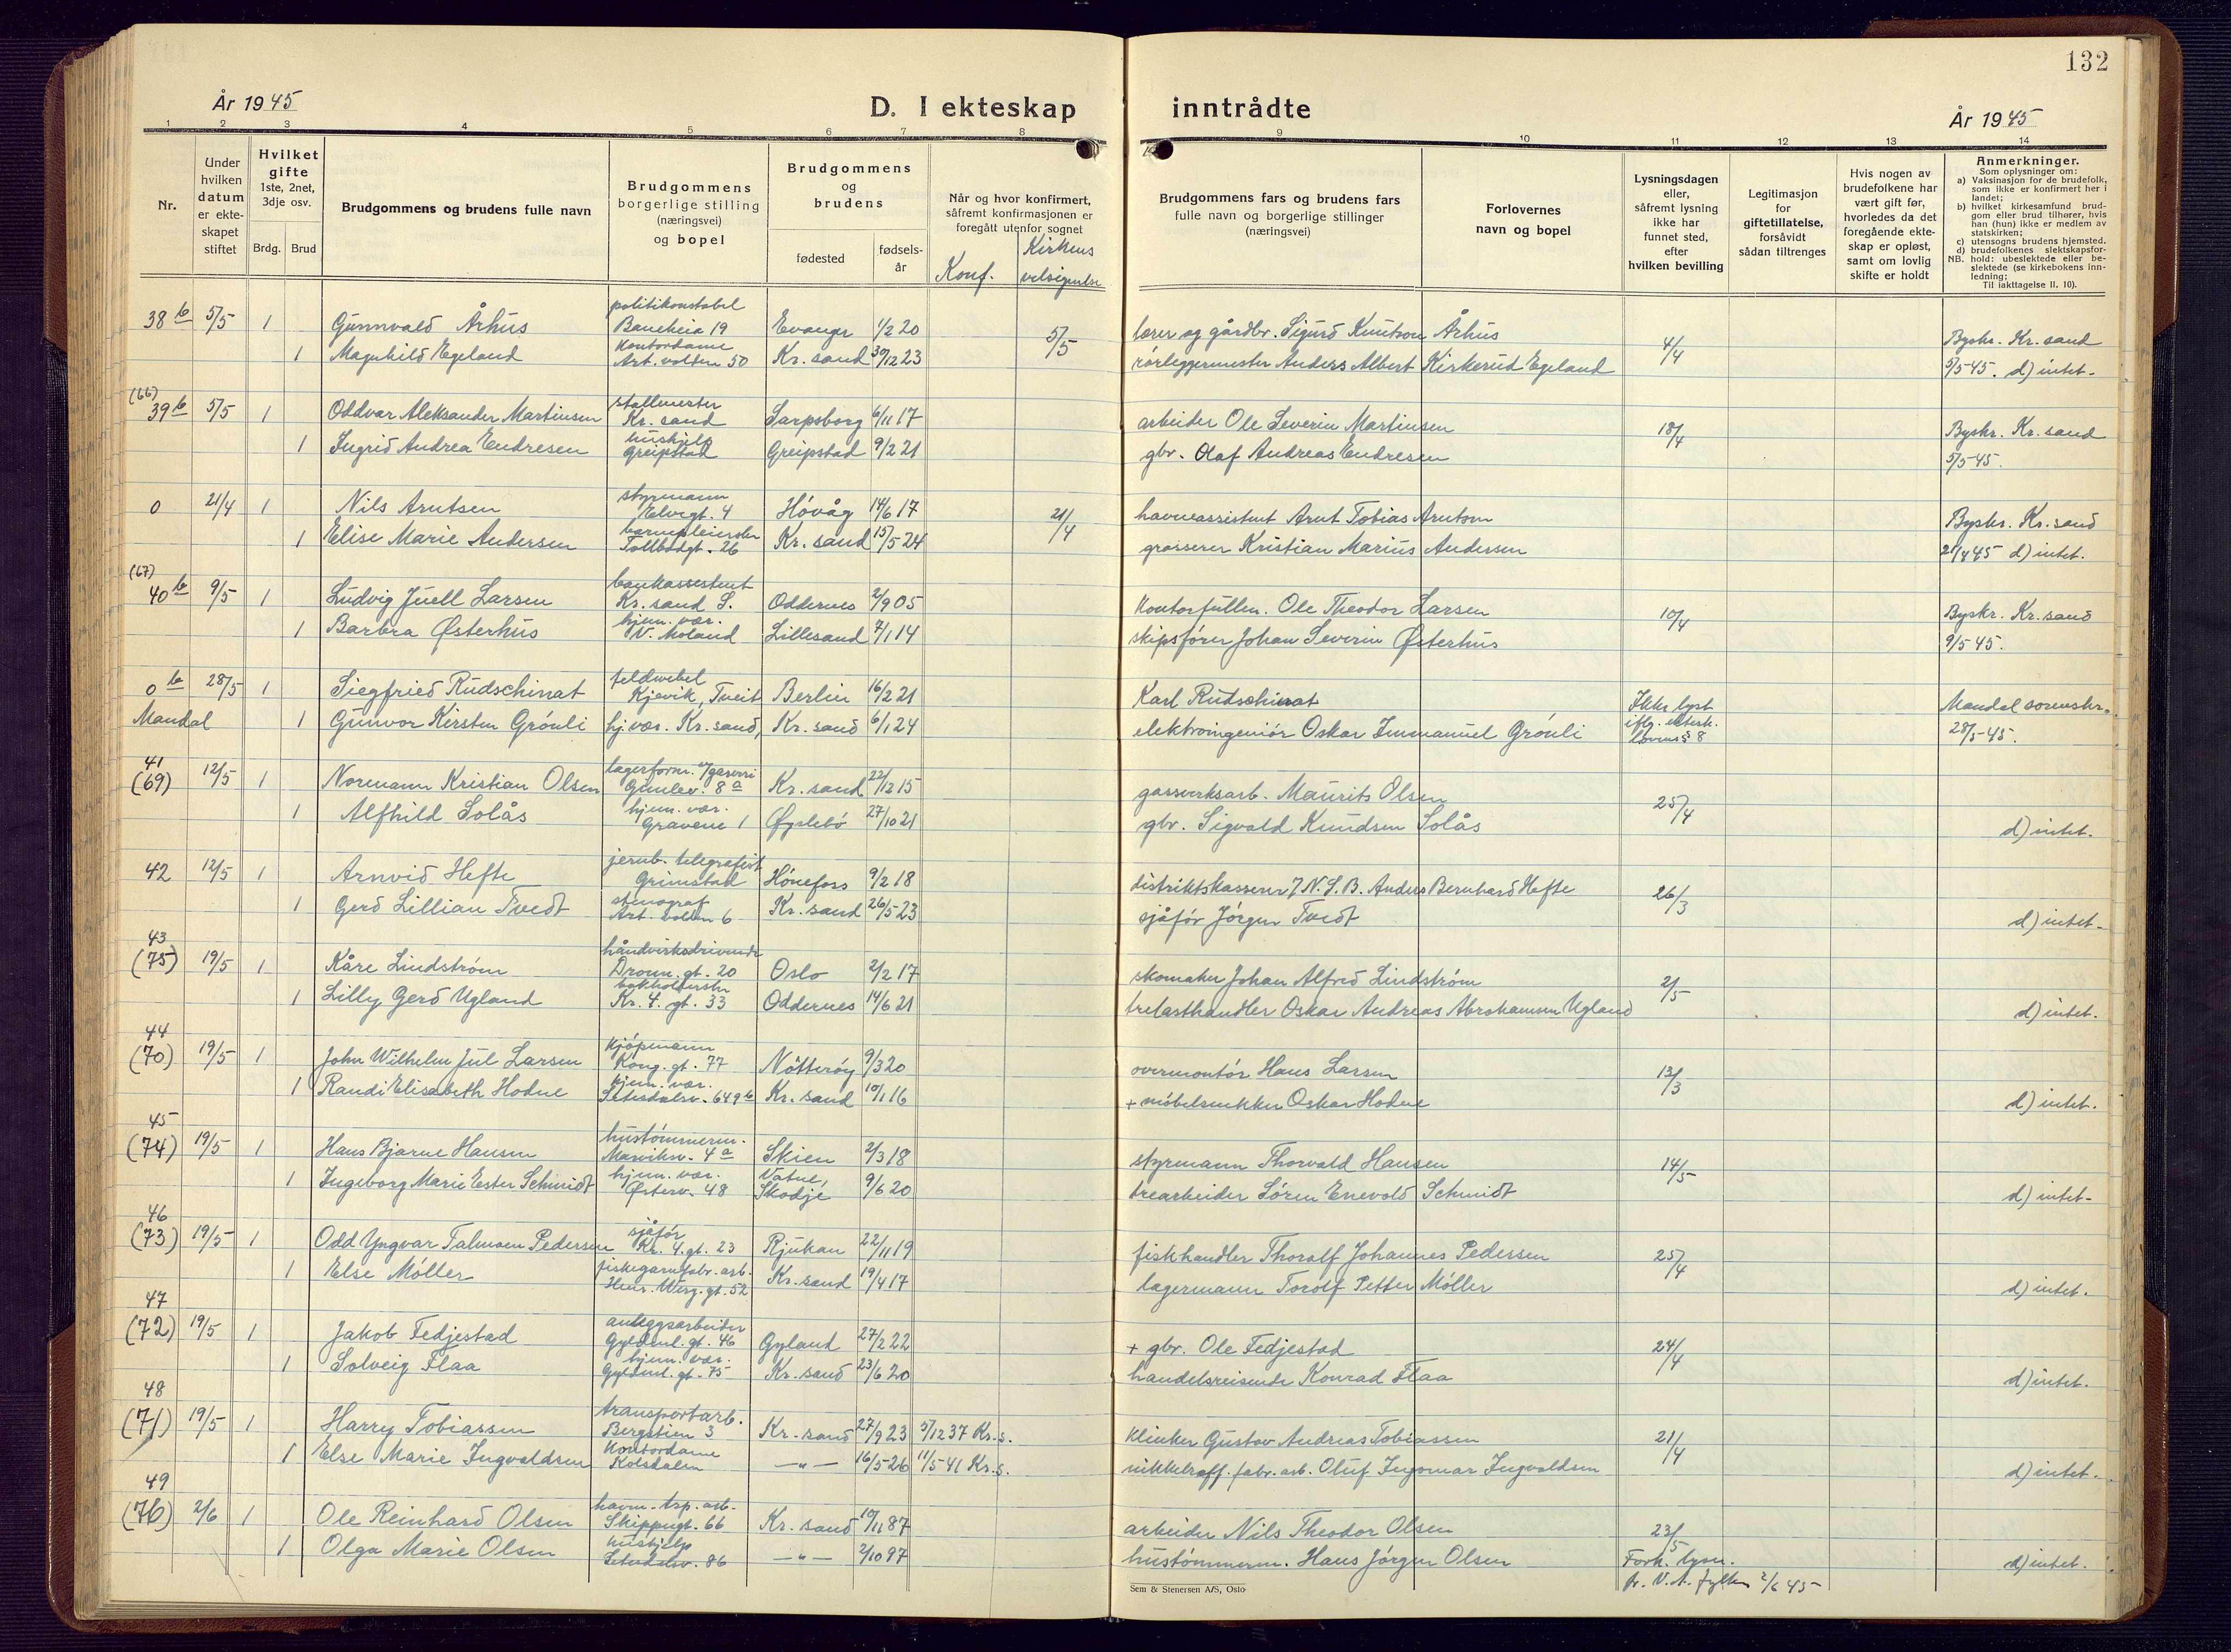 132
År 1945
D. I ekteskap inntrådte
År 1945
1 2 3 4 5 6 7 8 9 10 11 12 13 14
Nr.
Under hvilken datum er ekteskapet stiftet
Hvilket gifte 1ste, 2net, 3dje osv.
Brdg. Brud
Brudgommens og brudens fulle navn
Brudgommens borgerlige stilling (næringsvei) og bopel
Brudgommens og brudens
fødested
fødselsår
Når og hvor konfirmert, såfremt konfirmasjonen er foregått utenfor sognet
Konf.
Kirkens velsignelse
Brudgommens fars og brudens fars fulle navn og borgerlige stillinger (næringsvei)
Forlovernes navn og bopel
Lysningsdagen eller, såfremt lysning ikke har funnet sted, efter hvilken bevilling
Legitimasjon for giftetillatelse, forsåvidt sådan tiltrenges
Hvis nogen av brudefolkene har vært gift før, hvorledes da det foregående ekteskap er opløst, samt om lovlig skifte er holdt
Anmerkninger.
Som oplysninger om:
a) Vaksinasjon for de brudefolk, som ikke er konfirmert her i landet;
b) hvilket kirkesamfund brudgom eller brud tilhører, hvis han (hun) ikke er medlem av statskirken;
c) utensogns brudens hjemsted.
d) brudefolkenes slektskapsforhold: ubeslektede eller beslektede (se kirkebokens innledning;
NB.
Til iakttagelse II. 10).
38 b 5/5 1 Gunnvald Århus politikonstabel Baneheia 19 Evanger 1/2 20 5/5 lærer og gårdbr. Sigurd Knutson Århus 4/4 Byskr. Kr.sand
1 Magnhild Egeland kontordame Art.vollen 50 Kr.sand 30/12 23 rørleggermester Anders Albert Kirkerud Egeland 5/5-45. d) intet.
(66)
39 b 5/5 1 Oddvar Aleksander Martinsen stallmester Kr.sand Sarpsborg 6/11 17 arbeider Ole Severin Martinsen 18/4 Byskr. Kr.sand
1 Ingrid Andrea Endresen hushjelp Greipstad Greipstad 9/2 21 gbr. Olaf Andreas Endresen 5/5-45.
0 21/4 1 Nils Arntsen styrmann Elvegt. 4 Høvåg 14/6 17 21/4 havneassistent Arnt Tobias Arntsen Byskr. Kr.sand
1 Elise Marie Andersen barnepleierske Tollbodgt. 26 Kr.sand 15/5 24 grosserer Kristian Marius Andersen 21/4 45 d) intet.
(67)
40 b 9/5 1 Ludvig Juell Larsen bankassistent Kr.sand S. Oddernes 2/9 05 kontorfullm. Ole Theodor Larsen 10/4 Byskr. Kr.sand
1 Barbra Østerhus hjem. vær. V. Moland Lillesand 7/1 14 skipsfører Johan Severin Østerhus 9/5 45.
0 b 28/5 1 Siegfried Rudschinat feldwebel Kjevik, Tveit Berlin 16/2 21 Karl Rudschinat Ikke lyst Mandal sorenskr.
Mandal 1 Gunvor Kirsten Grønli hj.vær. Kr.sand, Kr.sand 6/1 24 elektroingeniør Oskar Immanuel Grønli iflg. ektesk. lovens § 8 28/5-45.
41
(69) 12/5 1 Normann Kristian Olsen Gimlev. 8 a Kr.sand 22/12 15 gassverksarb. Maurits Olsen 25/4
1 Alfhild Solås hjem. vær. Gravene 1 Øyslebø 27/10 21 gbr. Sigvald Knudsen Solås d) intet.
42 12/5 1 Arnvid Hefte jernb. telegrafist Grimstad Hønefoss 9/2 18 distriktskasserer N.S.B. Anders Bernhard Hefte 26/3
1 Gerd Lillian Tvedt stenograf Art. vollen 6 Kr.sand 26/5 23 sjåfør Jørgen Tvedt d) intet.
43
(75) 19/5 1 Kåre Lindstrøm håndverksdrivende Dronn. gt. 20 Oslo 2/2 17 skomaker Johan Alfred Lindstrøm 2/5
1 Lilly Gerd Ugland bokholderske Kr. 4. gt. 33 Oddernes 14/6 21 trelasthandler Oskar Andreas Abrahamsen Ugland d) intet.
44
(70) 19/5 1 John Wilhelm Jul Larsen kjøpmann Kong. gt. 77 Nøtterøy 9/3 20 overmontør Hans Larsen 13/3
1 Randi Elisabeth Hodne hjem. vær. Setesdalsv. 649 b Kr.sand 10/1 16 + møbelsnekker Oskar Hodne d) intet.
45
(74) 19/5 1 Hans Bjarne Hansen hustømmerm. Marviksv. 4 a Skien 2/3 18 styrmann Thorvald Hansen 14/5
1 Ingeborg Marie Ester Schmidt hjem. vær. Østerv. 48 Vatne, Skodje 9/6 20 trearbeider Søren Enevold Schmidt d) intet.
46
(73) 19/5 1 Odd Yngvar Talmoen Pedersen sjåfør Kr. 4. gt. 23 Rjukan 22/11 19 fiskhandler Thoralf Johannes Pedersen 25/4
1 Else Møller fiskegarnfabr. arb. Henr. Werg. gt. 52 Kr.sand 19/4 17 lagermann Torolf Petter Møller d) intet.
47
(72) 19/5 1 Jakob Fedjestad anleggsarbeider Gyldenl. gt. 46 Gyland 27/2 22 + gbr. Ole Fedjestad 24/4
1 Solveig Flaa hjem. vær. Gyldenl. gt. 75 Kr.sand 23/6 20 handelsreisende Konrad Flaa d) intet.
48
(71) 19/5 1 Harry Tobiassen transportarb. Bergstien 3 Kr.sand 27/9 23 5/12 37 Kr.s. klinker Gustav Andreas Tobiassen 21/4
1 Else Marie Ingvaldsen kontordame Kolsdalen —"— 16/5 26 11/5 41 Kr.s. nikkelraff. fabr. arb. Oluf Ingomar Ingvaldsen d) intet.
49
(76) 2/6 1 Ole Reinhard Olsen havn. trp. arb. Skippergt. 66 Kr.sand 10/11 87 arbeider Nils Theodor Olsen 23/5
1 Olga Marie Olsen hushjelp Setesdalsv. 86 —"— 2/10 97 hustømmerm. Hans Jørgen Olsen Fork. lysn. d) intet.
fr. V.A. fylke 2/6 45
Sem & Stenersen A/S, Oslo